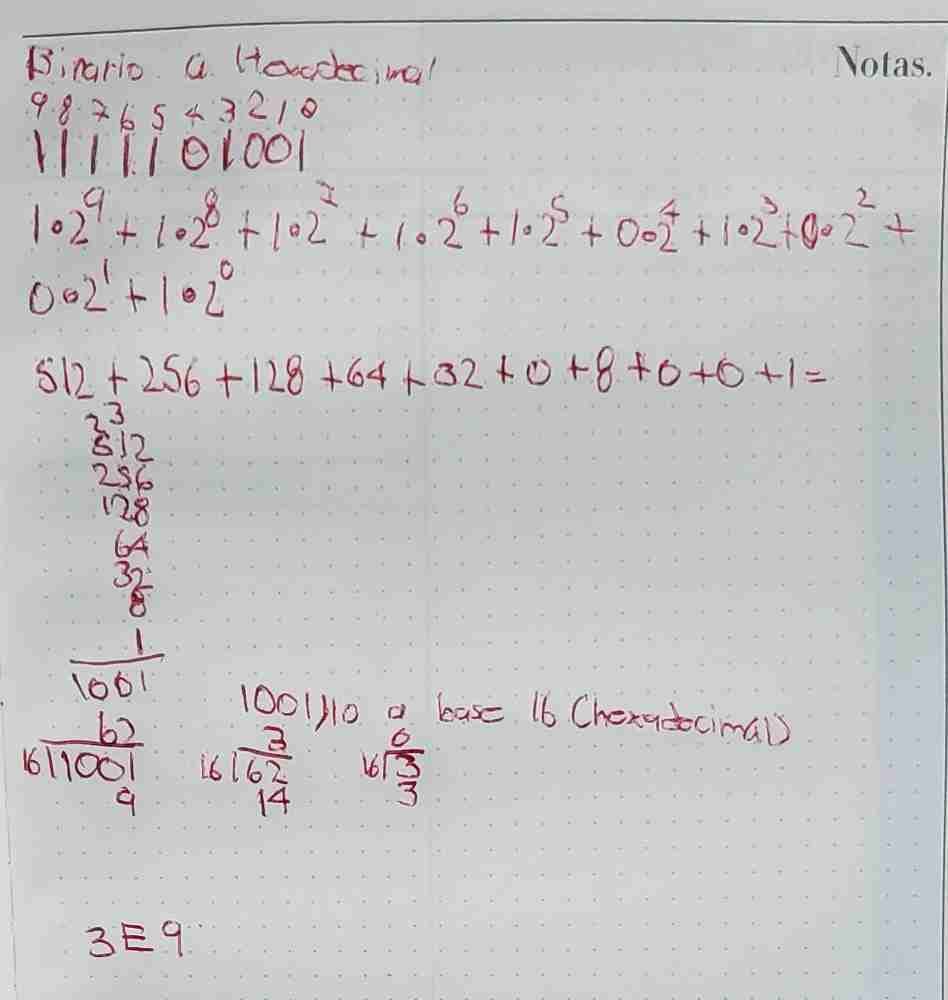 Binario a Hexadecimal
Notas.
9 8 7 6 5 4 3 2 1 0
1 1 1 1 1 0 1 0 0 1
1•2⁹ + 1•2⁸ + 1•2⁷ + 1•2⁶ + 1•2⁵ + 0•2⁴ + 1•2³ + 0•2² +
0•2¹ + 1•2⁰
512 + 256 + 128 + 64 + 32 + 0 + 8 + 0 + 0 + 1 =
23
512
256
128
64
32
8
1
1001
1001)10 a base 16 (hexadecimal)
62 3 0
16|1001 16|62 16|3
9 14 3
3E9